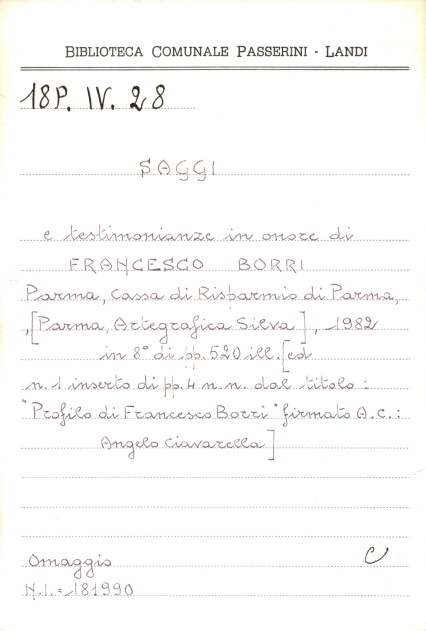 BIBLIOTECA COMUNALE PASSERINI - LANDI
18P. IV. 28
SAGGI
e testimonianze in onore di
FRANCESCO BORRI
Parma, Cassa di Risparmio di Parma,
,[Parma, Artegrafica Silva], 1982
in 8° di pp. 520 ill. [ed
n. 1 inserto di pp. 4 n. n. dal titolo:
"Profilo di Francesco Borri" firmato A.C.:
Angelo Ciavarella]
Omaggio
C
N.I.= 181990